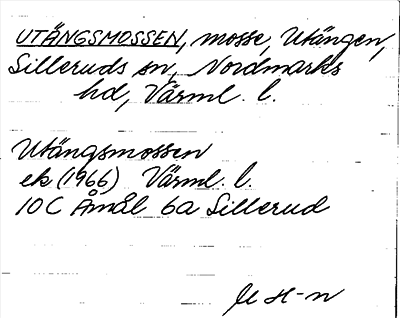 UTÄNGSMOSSEN, mosse, Utängen,
Silleruds sn, Nordmarks
hd, Värml. l.
Utängsmossen
ek (1966) Värml. l.
10C Åmål 6a Sillerud
M H-n